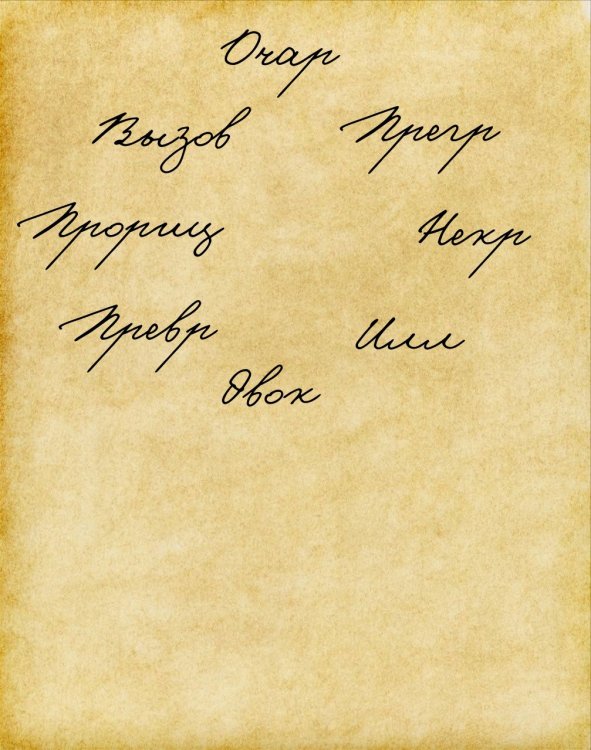 Очар
Вызов Прегр
Прориц Некр
Превр Илл
Эвок